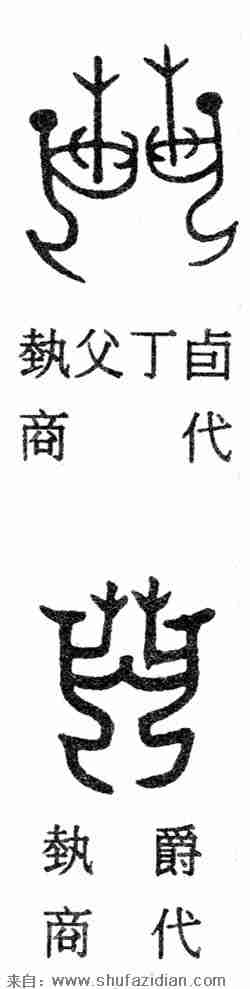 埶父丁卣
商代
埶爵
商代
来自：www.shufazidian.com